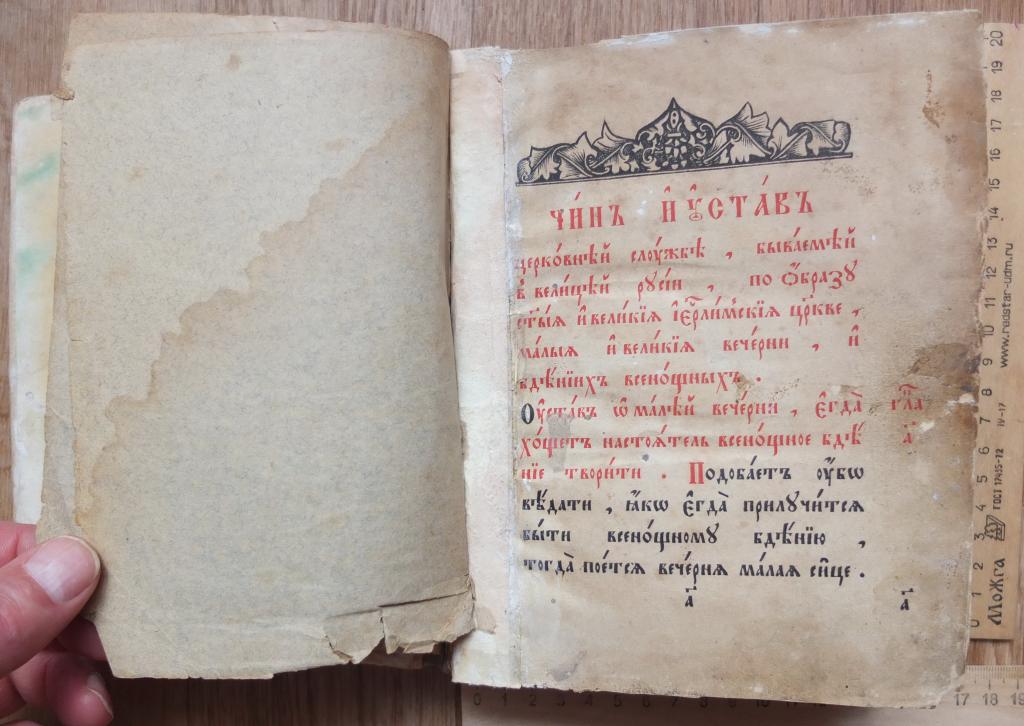 чи́нъ и҆ ᲂу҆ста́въ
церко́внѣй слꙋ́жбѣ , быва́емѣй
в вели́цѣй рꙋсі́и , по ѻ҆́бразꙋ
ст҃ы́ѧ и҆ вели́кїѧ і҆ер҇ли́мскїѧ цр҃кве ,
ма́лыѧ и҆ вели́кїѧ вече́рни , и҆
бдѣ́нїихъ всено́щныхъ .
Оу҆ста́въ ѡ҆ ма́лѣй вече́рни , є҆гда̀ гла
хо́щетъ настоѧ́тель всено́щное бдѣ́ а҃
нїе твори́ти . Подоба́етъ ᲂу҆́бѡ
вѣ́дати , ꙗ҆́кѡ є҆гда̀ прилꙋчи́тсѧ
бы́ти всено́щномꙋ бдѣ́нїю ,
тогда̀ пое́тсѧ вече́рнѧ ма́лаѧ си́це .
а҃ а҃
0 1 2 3 4 5 6 7 8 9 10 11 12 13 14 15 16 17 18 19 20
МоЖга ГОСТ 17435-72 IV-17 www.redstar-udm.ru
0 1 2 3 4 5 6 7 8 9 10 17 18 19